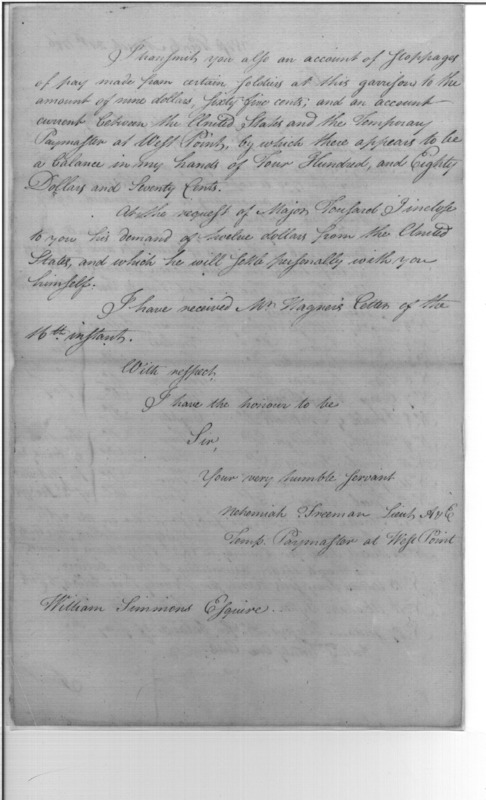 I transmit you also an account of stoppages
of pay made from certain soldiers at this garrison to the
amount of nine dollars, sixty five cents; and an account
current between the United States and the Temporary
Paymaster at West Point, by which there appears to be
a balance in my hands of Four Hundred, and Eighty
Dollars and Seventy Cents.
At the request of Major Tousard I inclose
to you his demand of twelve dollars from the United
States, and which he will settle personally with you
himself.
I have received Mr Wagner's Letter of the
16th instant.
With respect
I have the honour to be
Sir,
Your very humble servant
Nehemiah Freeman Lieut A&E
Temp. Paymaster at West Point
William Simmons Esquire.